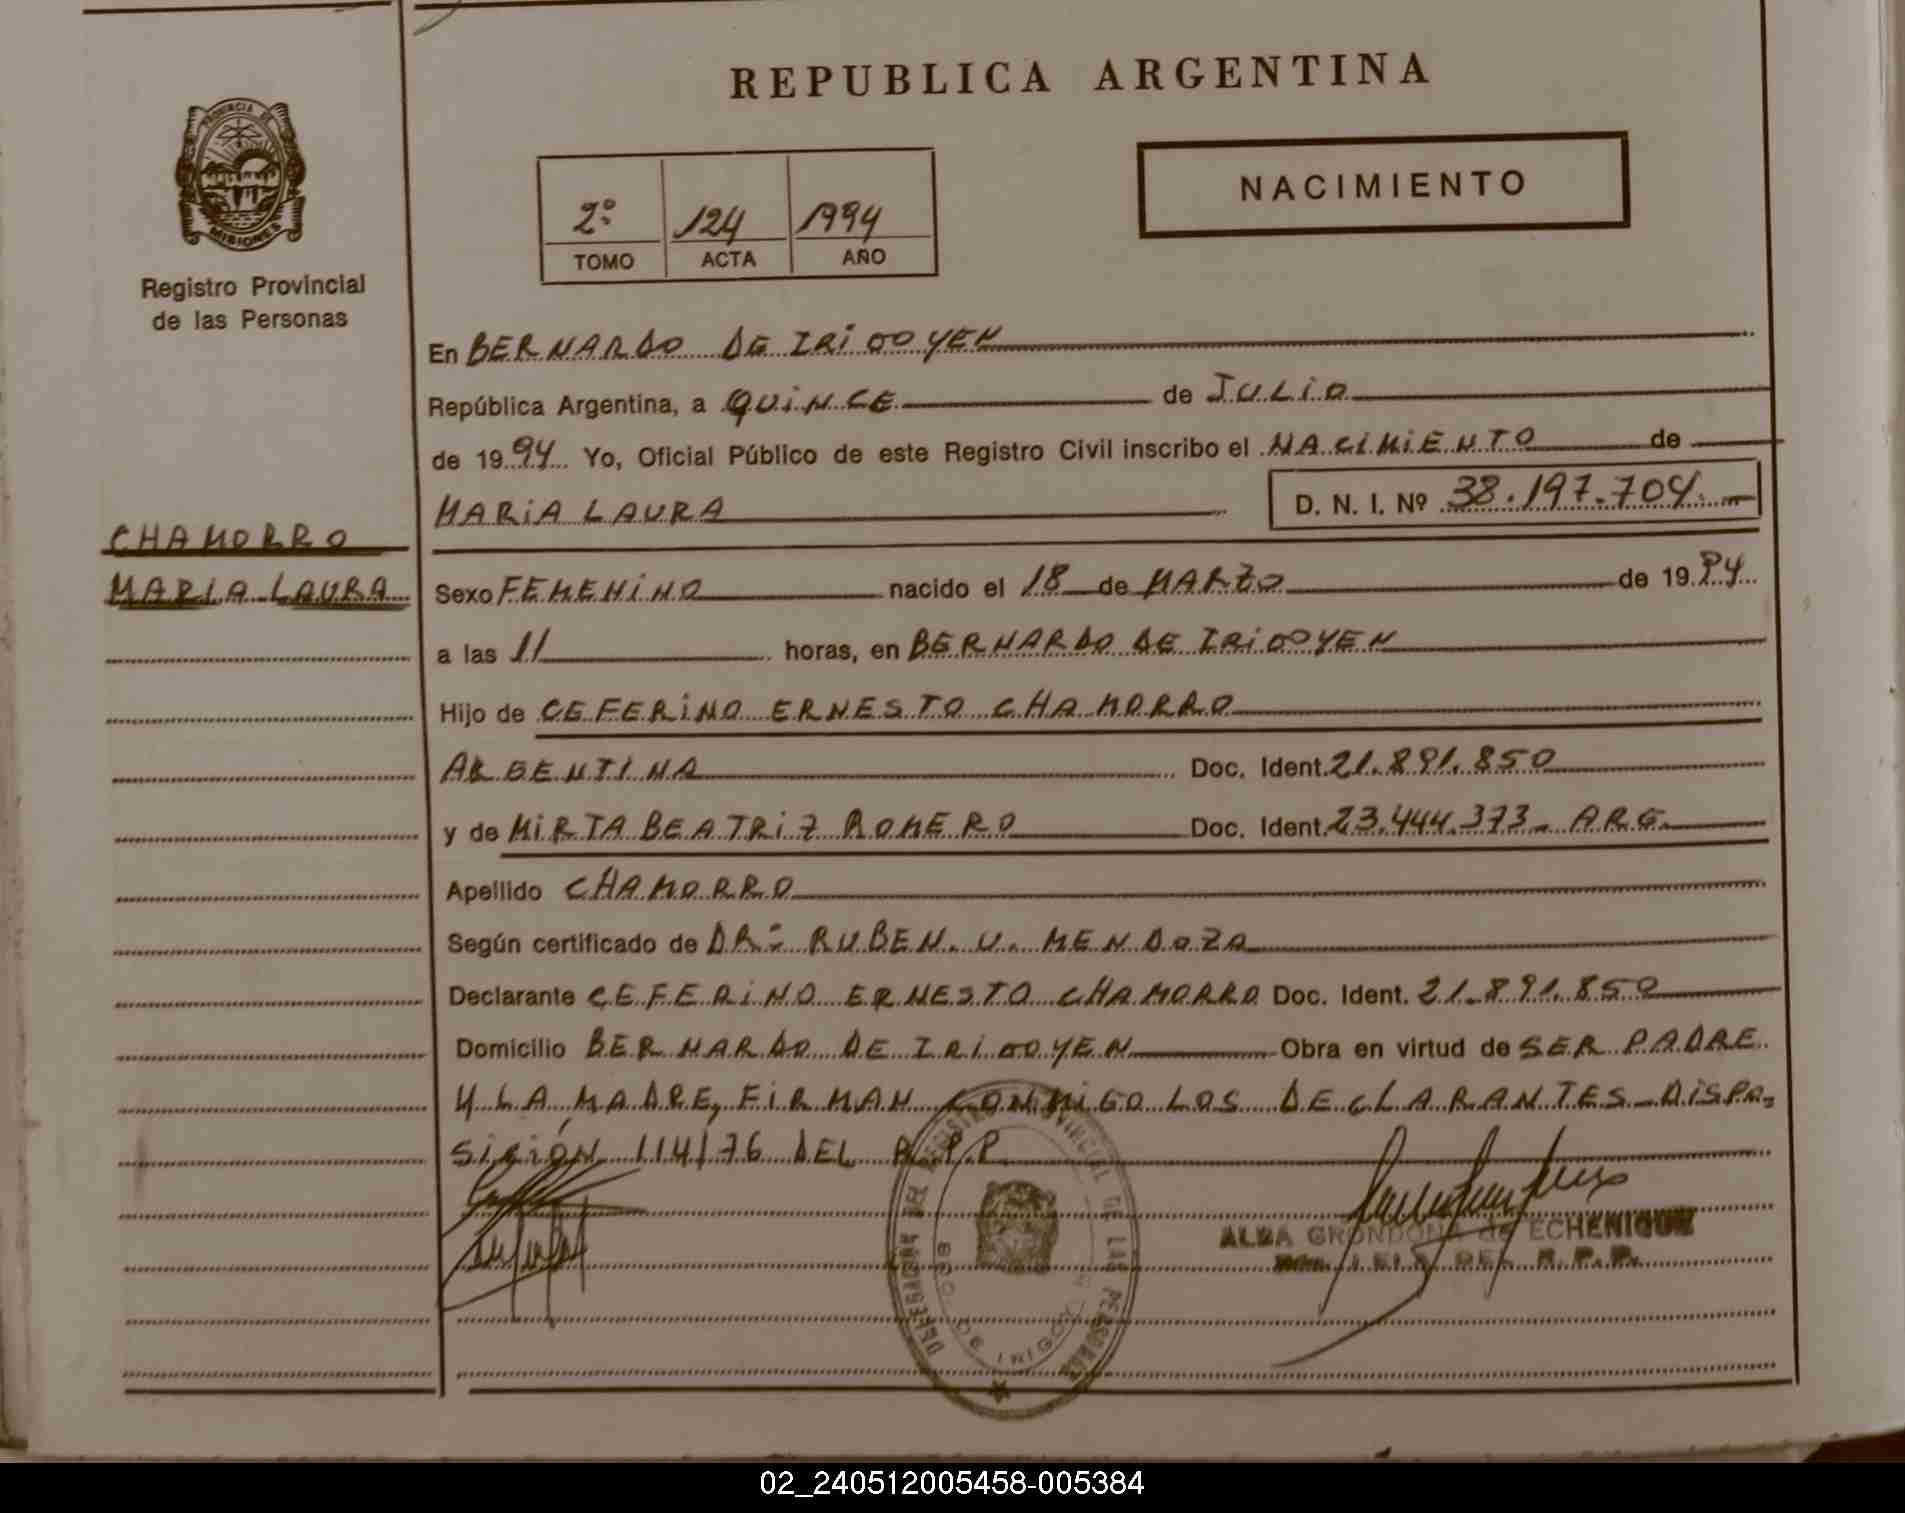 REPUBLICA ARGENTINA
PROVINCIA DE
MISIONES
Registro Provincial
de las Personas
NACIMIENTO
2º 124 1994
TOMO ACTA AÑO
En BERNARDO DE IRIGOYEN
República Argentina, a QUINCE de JULIO
de 1994 Yo, Oficial Público de este Registro Civil inscribo el NACIMIENTO de
MARIA LAURA D. N. I. Nº 38.197.704
CHAMORRO
MARIA LAURA
Sexo FEMENINO nacido el 18 de MARZO de 1994
a las 11 horas, en BERNARDO DE IRIGOYEN
Hijo de CEFERINO ERNESTO CHAMORRO
ARGENTINA Doc. Ident. 21.891.850
y de MIRTA BEATRIZ ROMERO Doc. Ident. 23.444.373- ARG.
Apellido CHAMORRO
Según certificado de DR: RUBEN. U. MENDOZA
Declarante CEFERINO ERNESTO CHAMORRO Doc. Ident. 21.891.850
Domicilio BERNARDO DE IRIGOYEN Obra en virtud de SER PADRE
Y LA MADRE, FIRMAN CONMIGO LOS DECLARANTES-DISPO-
SICIÓN 114/76 DEL R.P.P
DEL REGISTRO PROVINCIAL DE LAS PERSONAS
ALBA GRONDONA de ECHENIQUE
DEL R.P.P.
02_240512005458-005384